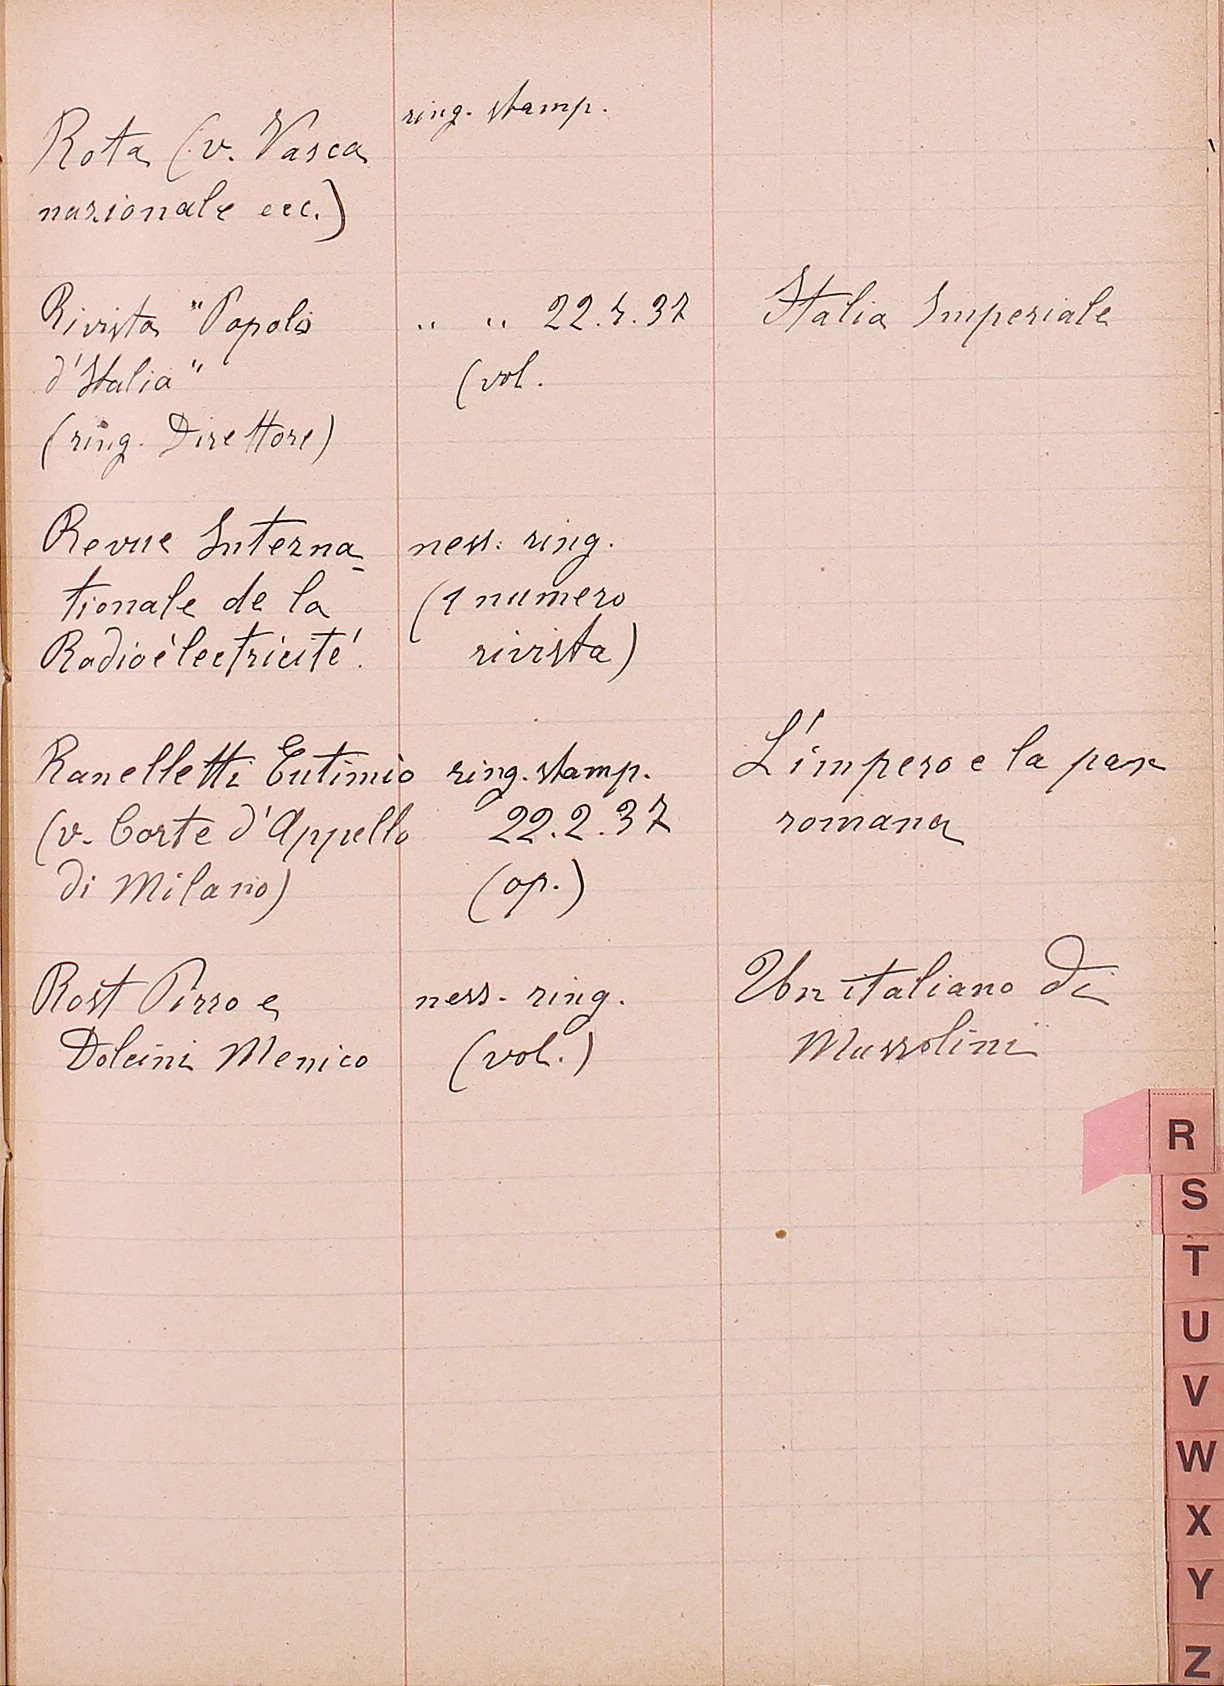 ring. stamp.
Rota (v. Vasca
nazionale ecc.)
Rivista "Popolo " " 22.2.37 Italia Imperiale
d'Italia" (vol.
(ring. Direttore)
Revue Interna- ness. ring.
tionale de la (1 numero
Radioélectricité. rivista)
Ranelletti Eutimio ring. stamp. L'impero e la pax
(v. Corte d'Appello 22.2.37 romana
di Milano) (op.)
Rost Pirro e ness. ring. Un italiano di
Dolcini Menico (vol.) Mussolini
R
S
T
U
V
W
X
Y
Z